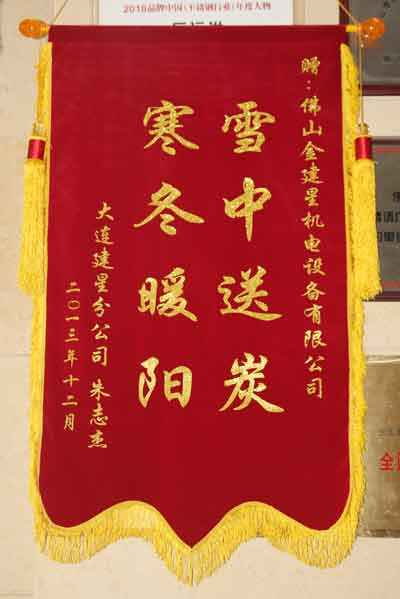 2018品牌中国(不锈钢行业)年度人物
赠：佛山金建星机电设备有限公司
雪中送炭
寒冬暖阳
大连建星分公司 朱志杰
二〇一三年十二月